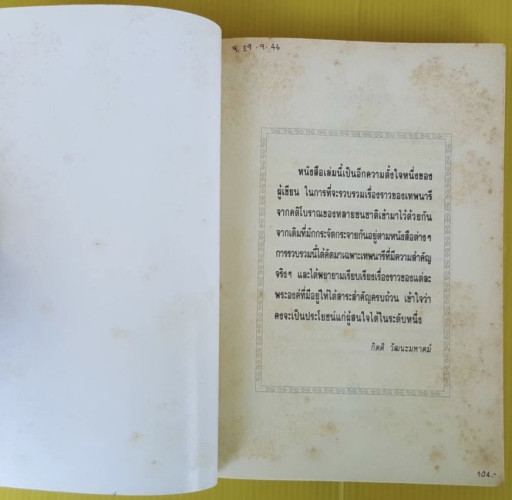 ซ. 29.9.46
หนังสือเล่มนี้เป็นอีกความตั้งใจหนึ่งของ
ผู้เขียน ในการที่จะรวบรวมเรื่องราวของเทพนารี
จากคติโบราณของหลายชนชาติเข้ามาไว้ด้วยกัน
จากเดิมที่มักกระจัดกระจายกันอยู่ตามหนังสือต่างๆ
การรวบรวมนี้ได้คัดมาเฉพาะเทพนารีที่มีความสำคัญ
จริงๆ และได้พยายามเรียบเรียงเรื่องราวของแต่ละ
พระองค์ที่มีอยู่ให้ได้สาระสำคัญครบถ้วน เข้าใจว่า
คงจะเป็นประโยชน์แก่ผู้สนใจได้ในระดับหนึ่ง
กิตติ วัฒนะมหาตม์
104.-